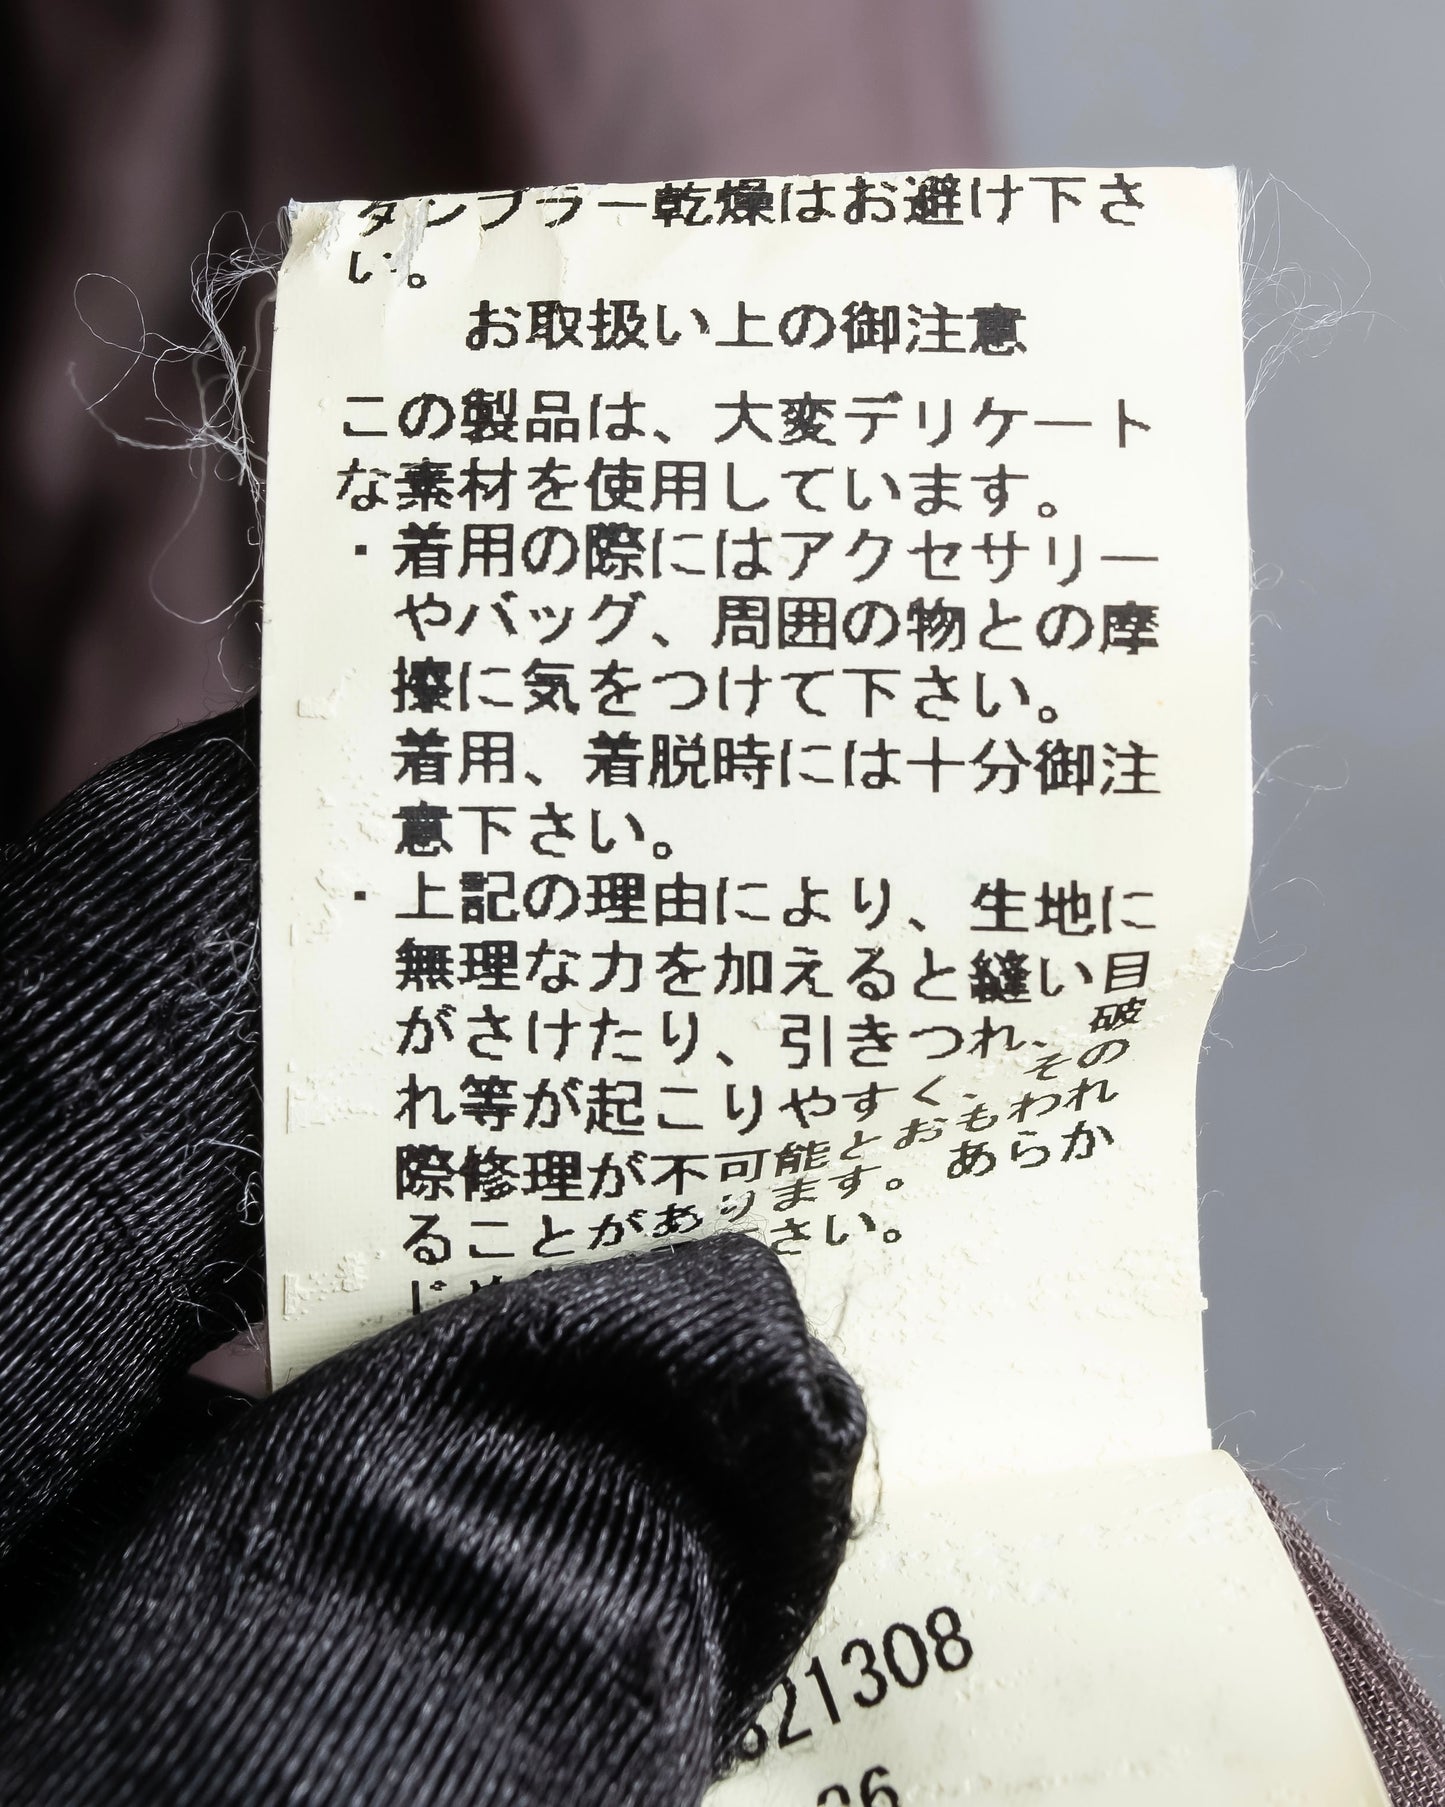 タンブラー乾燥はお避け下さ
い。
お取扱い上の御注意
この製品は、大変デリケート
な素材を使用しています。
・着用の際にはアクセサリー
やバッグ、周囲の物との摩
擦に気をつけて下さい。
着用、着脱時には十分御注
意下さい。
・上記の理由により、生地に
無理な力を加えると縫い目
がさけたり、引きつれ、破
れ等が起こりやすく、その
際修理が不可能とおもわれ
ることがあります。あらか
じ さい。
21308
26